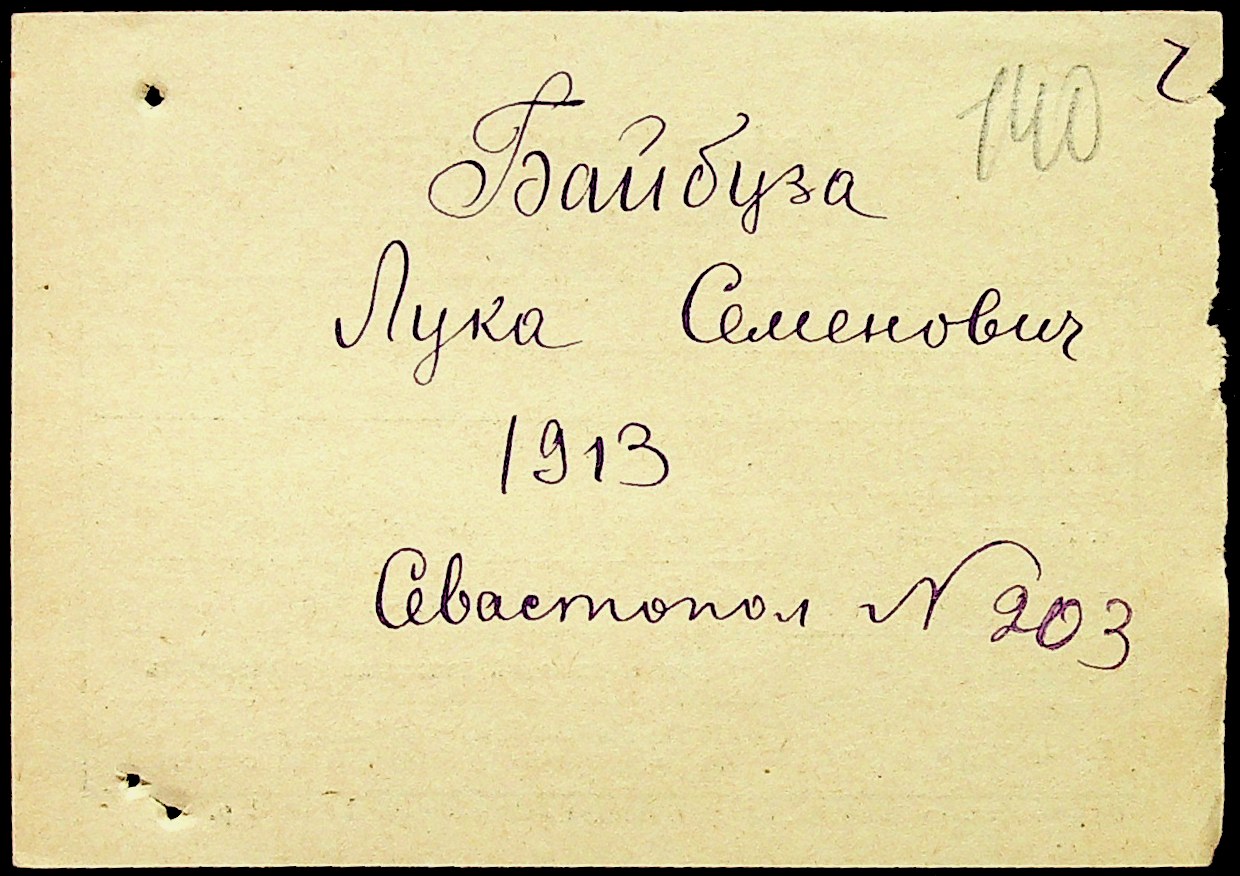 140
Байбуза
Лука Семенович
1913
Севастопол N 203